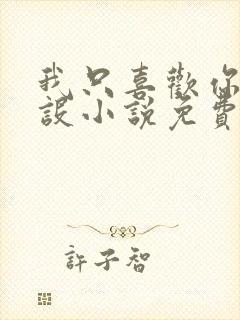 我只喜歡你
設小說免費
許子智